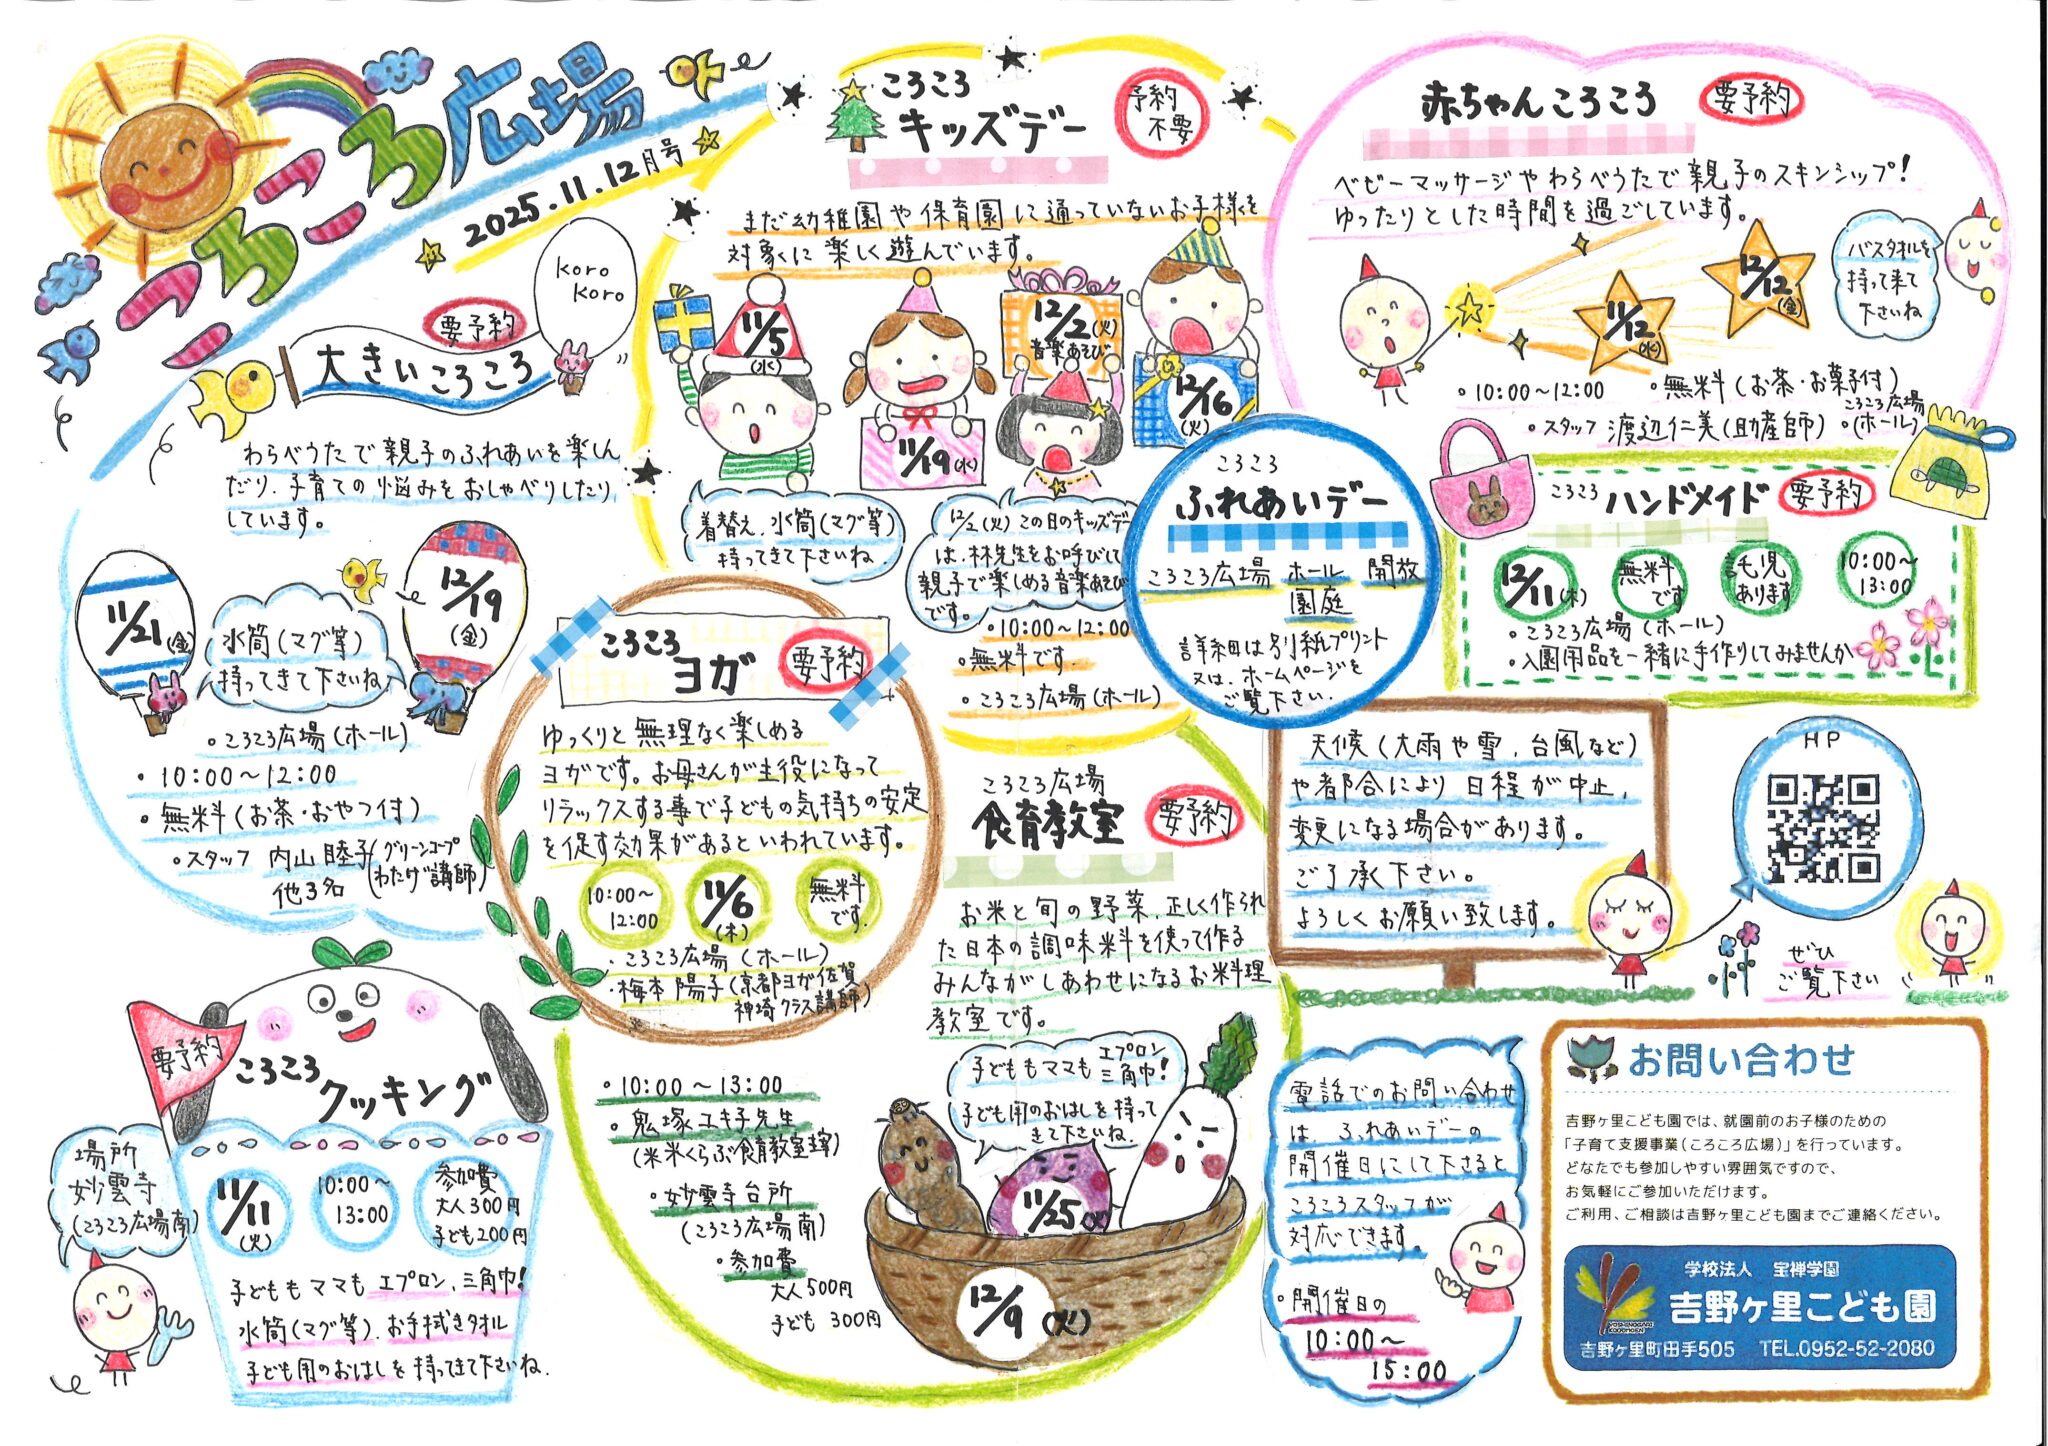 ころころ広場
2025.11.12月号
koro
koro
要予約
大きいころころ
わらべうたで親子のふれあいを楽しん
だり、子育ての悩みをおしゃべりしたり
しています。
11/21(金)
12/19
(金)
水筒(マグ等)
持ってきて下さいね
・ころころ広場(ホール)
・10:00～12:00
・無料(お茶・おやつ付)
・スタッフ 内山睦子(グリーンコープ
わたげ講師)
他3名
ころころ
キッズデー
予約
不要
まだ幼稚園や保育園に通っていないお子様を
対象に楽しく遊んでいます。
11/5
(水)
11/19(水)
12/2(火)
音楽あそび
12/16
(火)
着替え、水筒(マグ等)
持ってきて下さいね
12/2(火)この日のキッズデー
は、林先生をお呼びして
親子で楽しめる音楽あそび
です。
・10:00～12:00
・無料です。
・ころころ広場(ホール)
赤ちゃんころころ
要予約
ベビーマッサージやわらべうたで親子のスキンシップ!
ゆったりとした時間を過ごしています。
11/12
(水)
12/12
(金)
バスタオルを
持って来て
下さいね
・10:00～12:00 ・無料(お茶・お菓子付)
・スタッフ 渡辺仁美(助産師) ・ころころ広場
(ホール)
ころころ
ふれあいデー
ころころ広場 ホール 開放
園庭
詳細は別紙プリント
又は、ホームページを
ご覧下さい.
ころころ ハンドメイド
要予約
12/11(木)
無料
です
託児
あります
10:00～
13:00
・ころころ広場(ホール)
・入園用品を一緒に手作りしてみませんか
ころころ
ヨガ
要予約
ゆっくりと無理なく楽しめる
ヨガです。お母さんが主役になって
リラックスする事で子どもの気持ちの安定
を促す効果があるといわれています。
10:00～
12:00
11/6
(木)
無料
です.
・ころころ広場(ホール)
・梅本陽子(京都ヨガ佐賀
神埼クラス講師)
ころころ広場
食育教室
要予約
お米と旬の野菜、正しく作られ
た日本の調味料を使って作る
みんながしあわせになるお料理
教室です。
子どももママも エプロン
三角巾!
子ども用のおはしを持って
きて下さいね.
・10:00～13:00
・鬼塚ユキ子先生
・妙雲寺台所
(ころころ広場南)
・参加費
大人500円
子ども300円
11/25(火)
12/9(火)
天候(大雨や雪、台風など)
や都合により日程が中止、
変更になる場合があります。
ご了承下さい。
よろしくお願い致します。
HP
ぜひ
ご覧下さい
要予約
ころころ
クッキング
場所
妙雲寺
(ころころ広場南)
11/11
(火)
10:00～
13:00
参加費
大人300円
子ども200円
子どももママもエプロン、三角巾!
水筒(マグ等)、お手拭きタオル
子ども用のおはしを持ってきて下さいね.
電話でのお問い合わせ
は、ふれあいデーの
開催日にして下さると
ころころスタッフが
対応できます。
・開催日の
10:00～
15:00
お問い合わせ
吉野ヶ里こども園では、就園前のお子様のための
「子育て支援事業(ころころ広場)」を行っています。
どなたでも参加しやすい雰囲気ですので、
お気軽にご参加いただけます。
ご利用、ご相談は吉野ヶ里こども園までご連絡ください。
学校法人 宝禅学園
吉野ヶ里こども園
YOSHINOGARI
KODOMOEN
吉野ヶ里町田手505 TEL.0952-52-2080